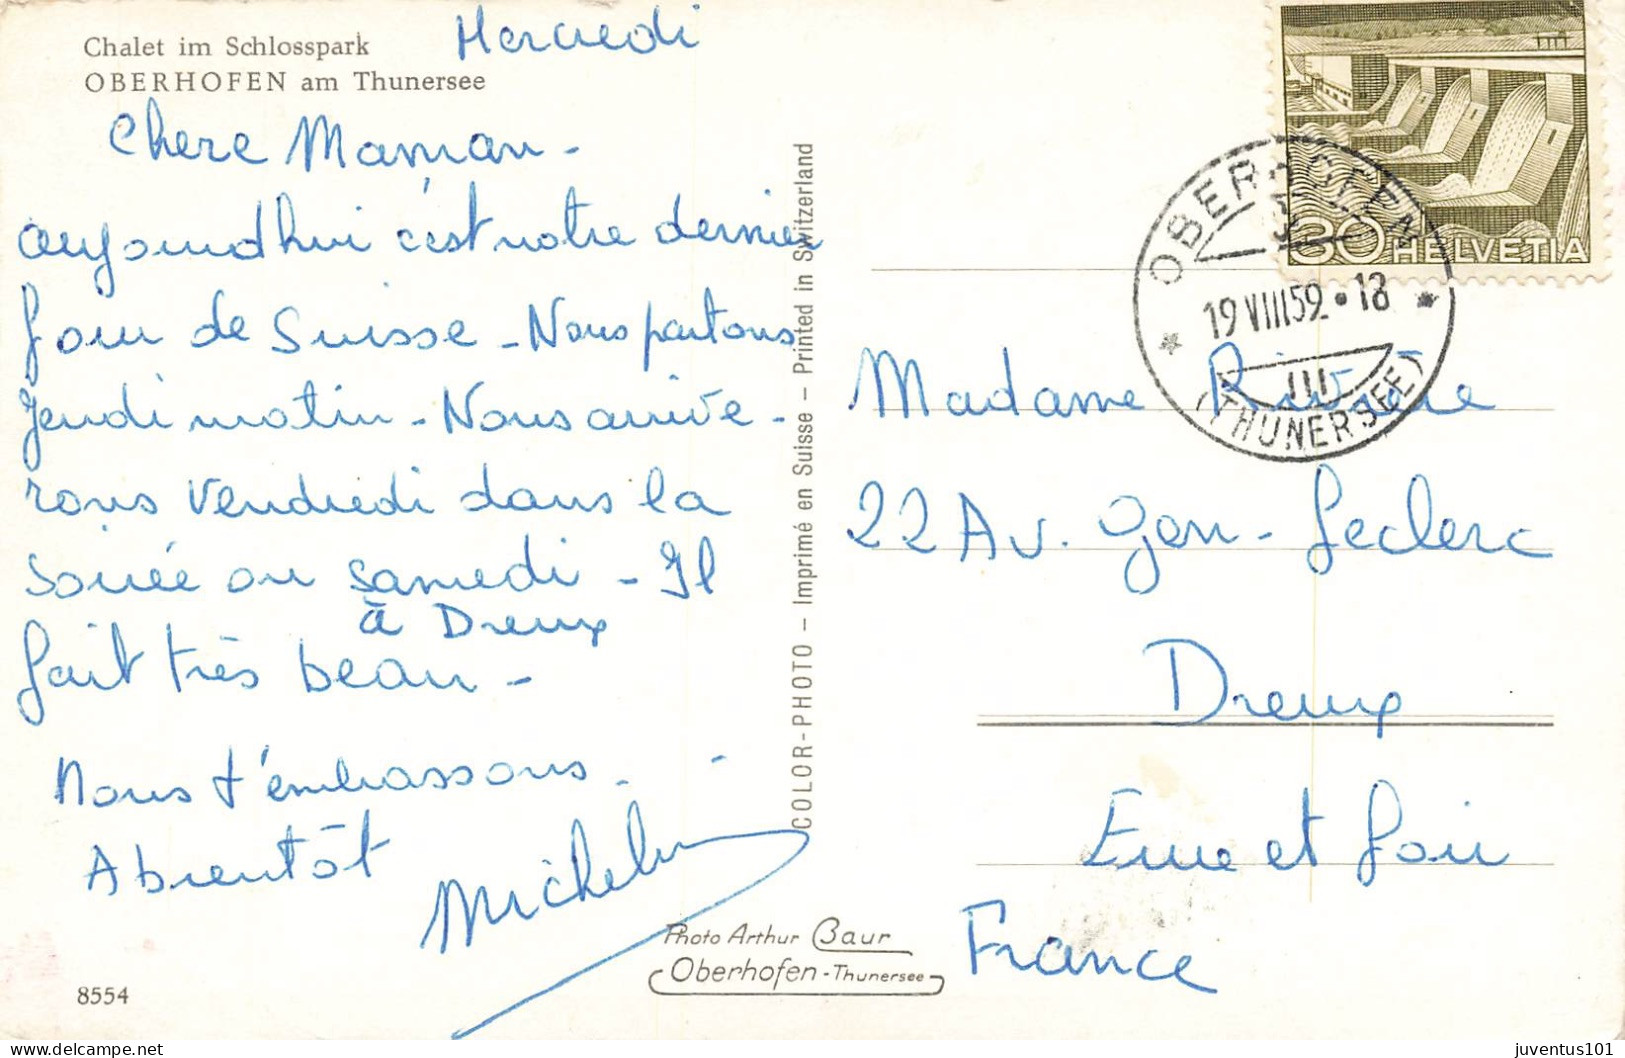 Chalet im Schlosspark
OBERHOFEN am Thunersee
Mercredi
Chere Maman -
aujourdhui c'est notre dernier
jour de Suisse - Nous partons
Jeudi matin - Nous arrive-
rons Vendredi dans la
soirée ou samedi - Il
à Dreux
fait très beau -
Nous t'embrassons -
A bientôt
8554
COLOR-PHOTO – Imprimé en Suisse – Printed in Switzerland
Photo Arthur Baur
Oberhofen - Thunersee
30 HELVETIA
OBERHOFEN
19 VIII 59 • 18
(THUNERSEE)
Madame Rivière
22 Av. Gen - Leclerc
Dreux
Eure et Loir
France
juventus101
delcampe.net